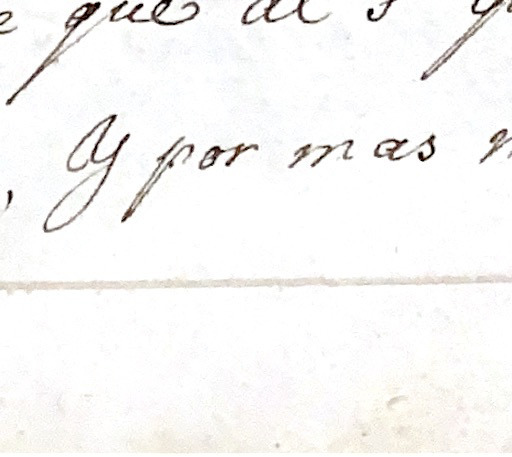 que al
, Y por mas